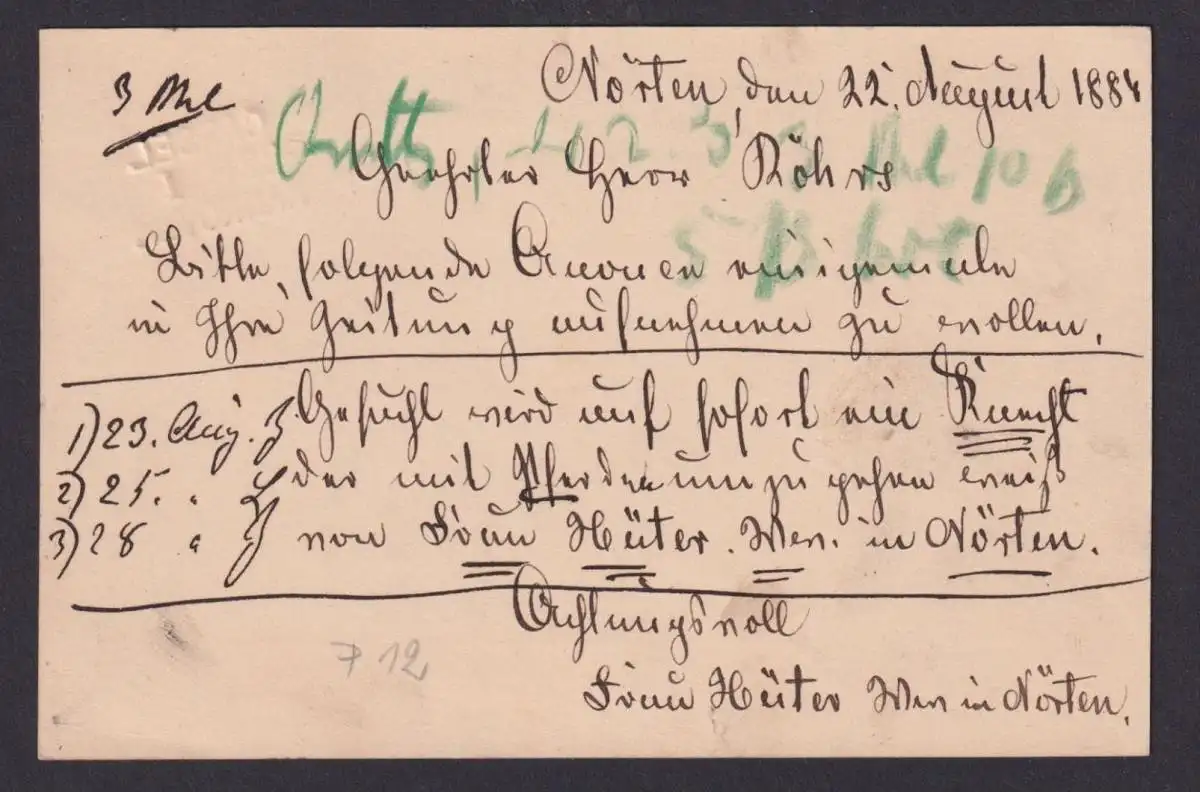 3 Mal
Nörten, den 22. August 1884
Geehrter Herr Röhrs
Bitte folgende Anonce einigemale
in Ihre Zeitung aufnehmen zu wollen.
Gesucht wird auf sofort ein Knecht
der mit Pferden umzugehen weiß
von Frau Hüter. Wwe. in Nörten.
1) 23. Aug.
2) 25. "
3) 28 "
Achtungsvoll
Frau Hüter Wwe in Nörten.
12